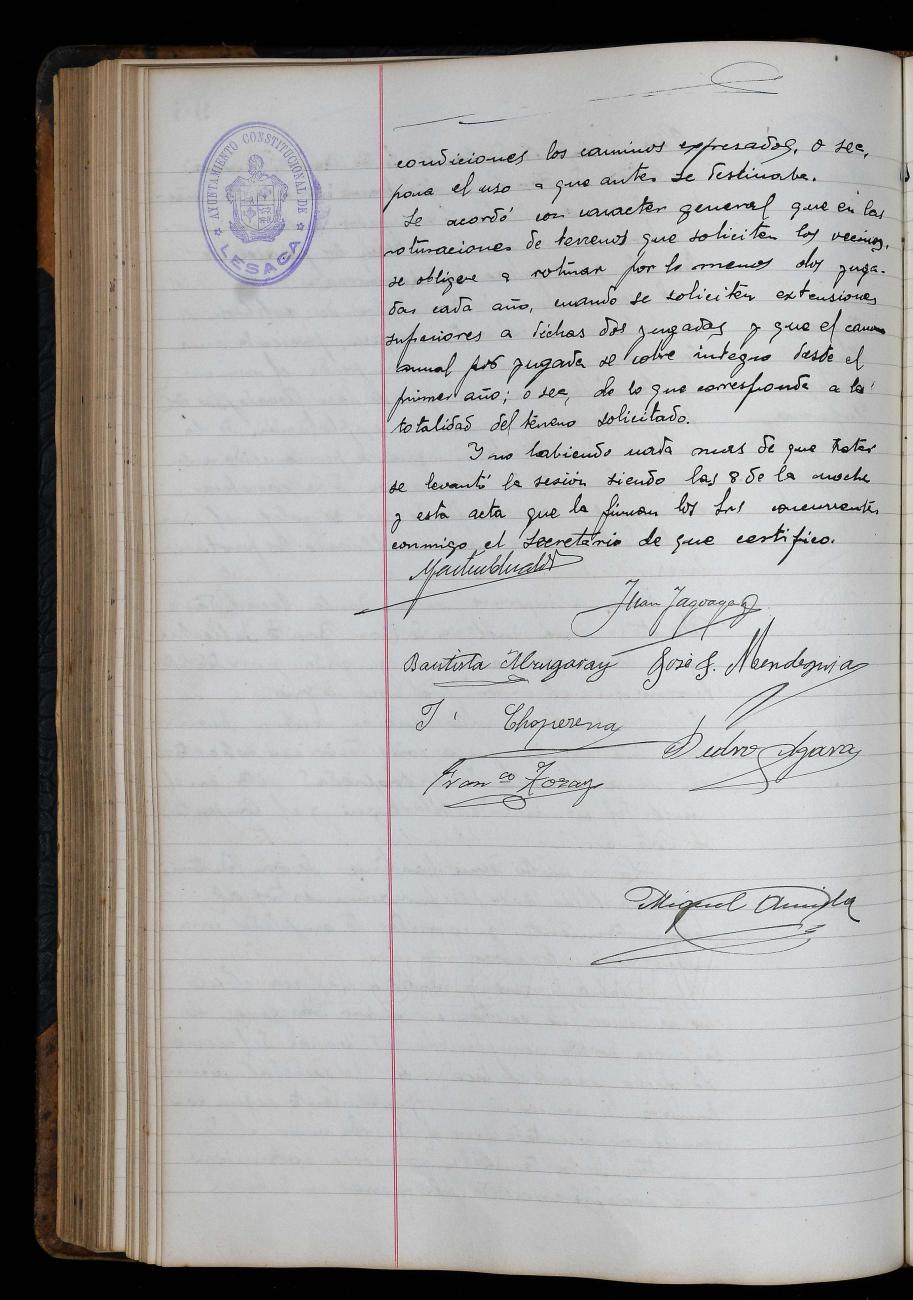 AYUNTAMIENTO CONSTITUCIONAL DE
LESACA
condiciones los caminos expresados, o sea,
para el uso a que antes se destinaba.
Se acordó con caracter general que en las
roturaciones de terrenos que soliciten los vecinos,
se obligue a roturar por lo menos dos yuga-
das cada año, cuando se soliciten extensiones
superiores a dichas dos yugadas y que el canon
anual por yugada se cobre integro desde el
primer año; o sea, de lo que corresponda a la
totalidad del terreno solicitado.
Y no habiendo nada mas de que tratar
se levantó la sesión siendo las 8 de la noche
y esta acta que la firman los Srs concurrentes
conmigo el Secretario de que certifico.
Juan
Bautista José J. Mendeguia
J. Choperena
Pedro
Franco
Miguel